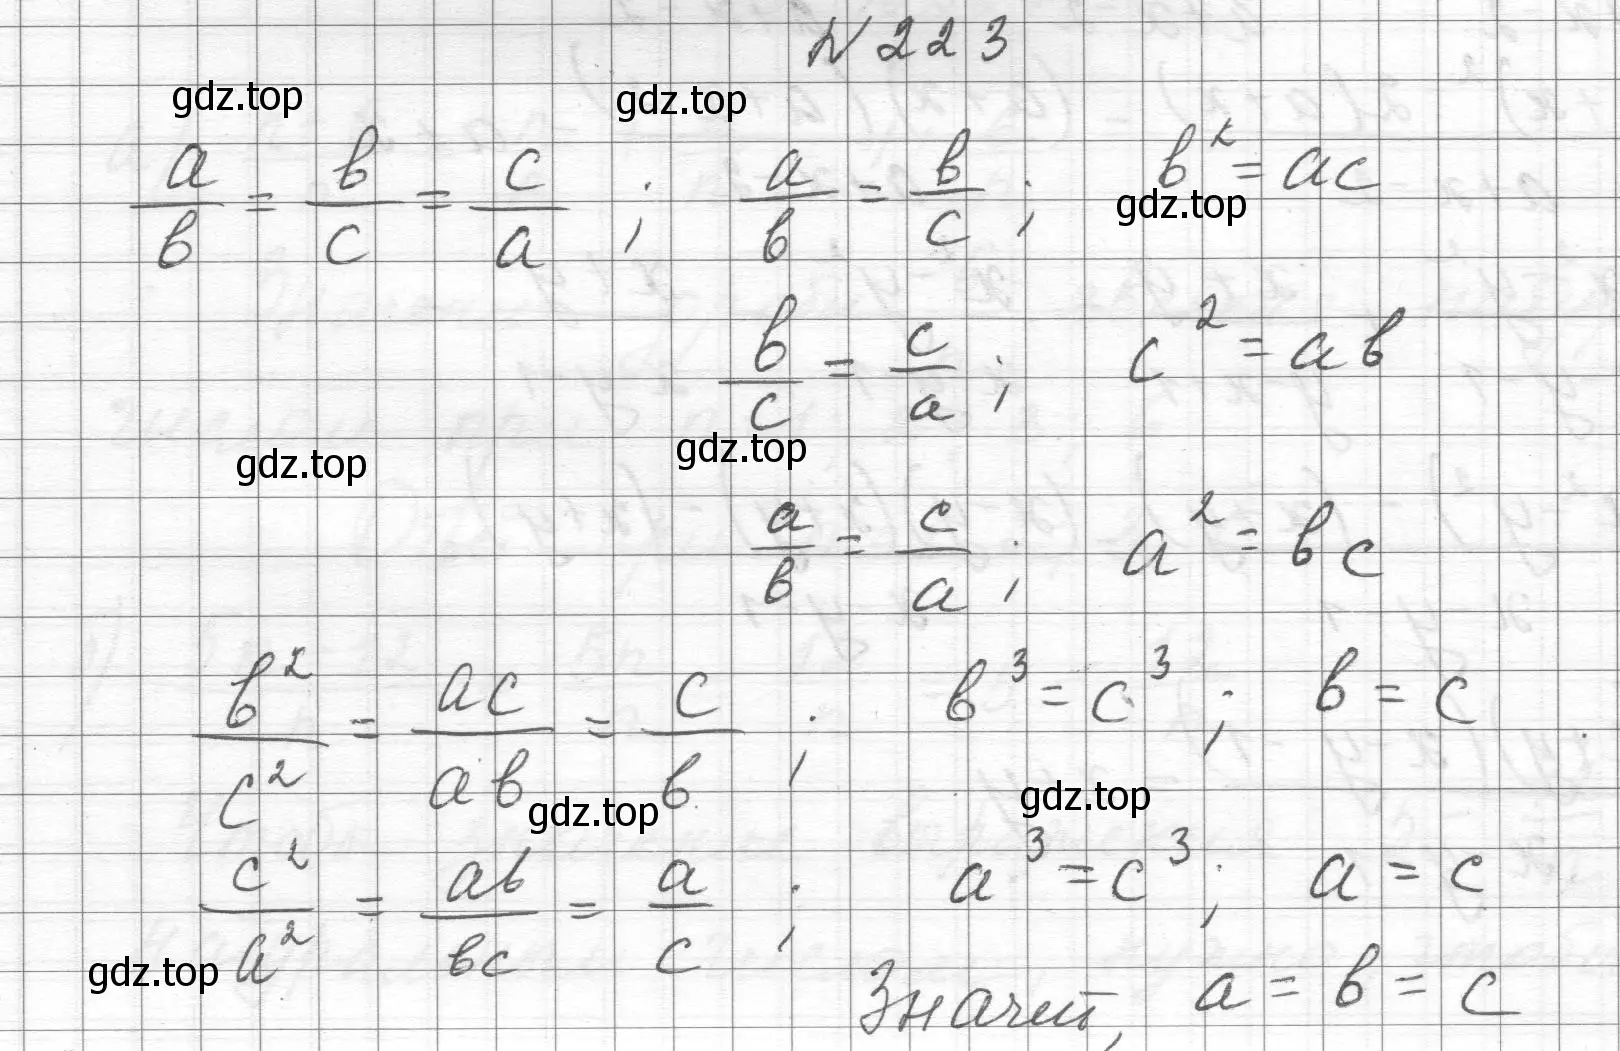 N 223
gdz.top gdz.top
a/b = b/c = c/a ; a/b = b/c ; b² = ac
gdz.top
b/c = c/a ; c² = ab
gdz.top gdz.top
a/b = c/a ; a² = bc
b²/c² = ac/ab = c/b ; b³ = c³ ; b = c
gdz.top gdz.top
c²/a² = ab/bc = a/c ; a³ = c³ ; a = c
gdz.top
Значит, a = b = c